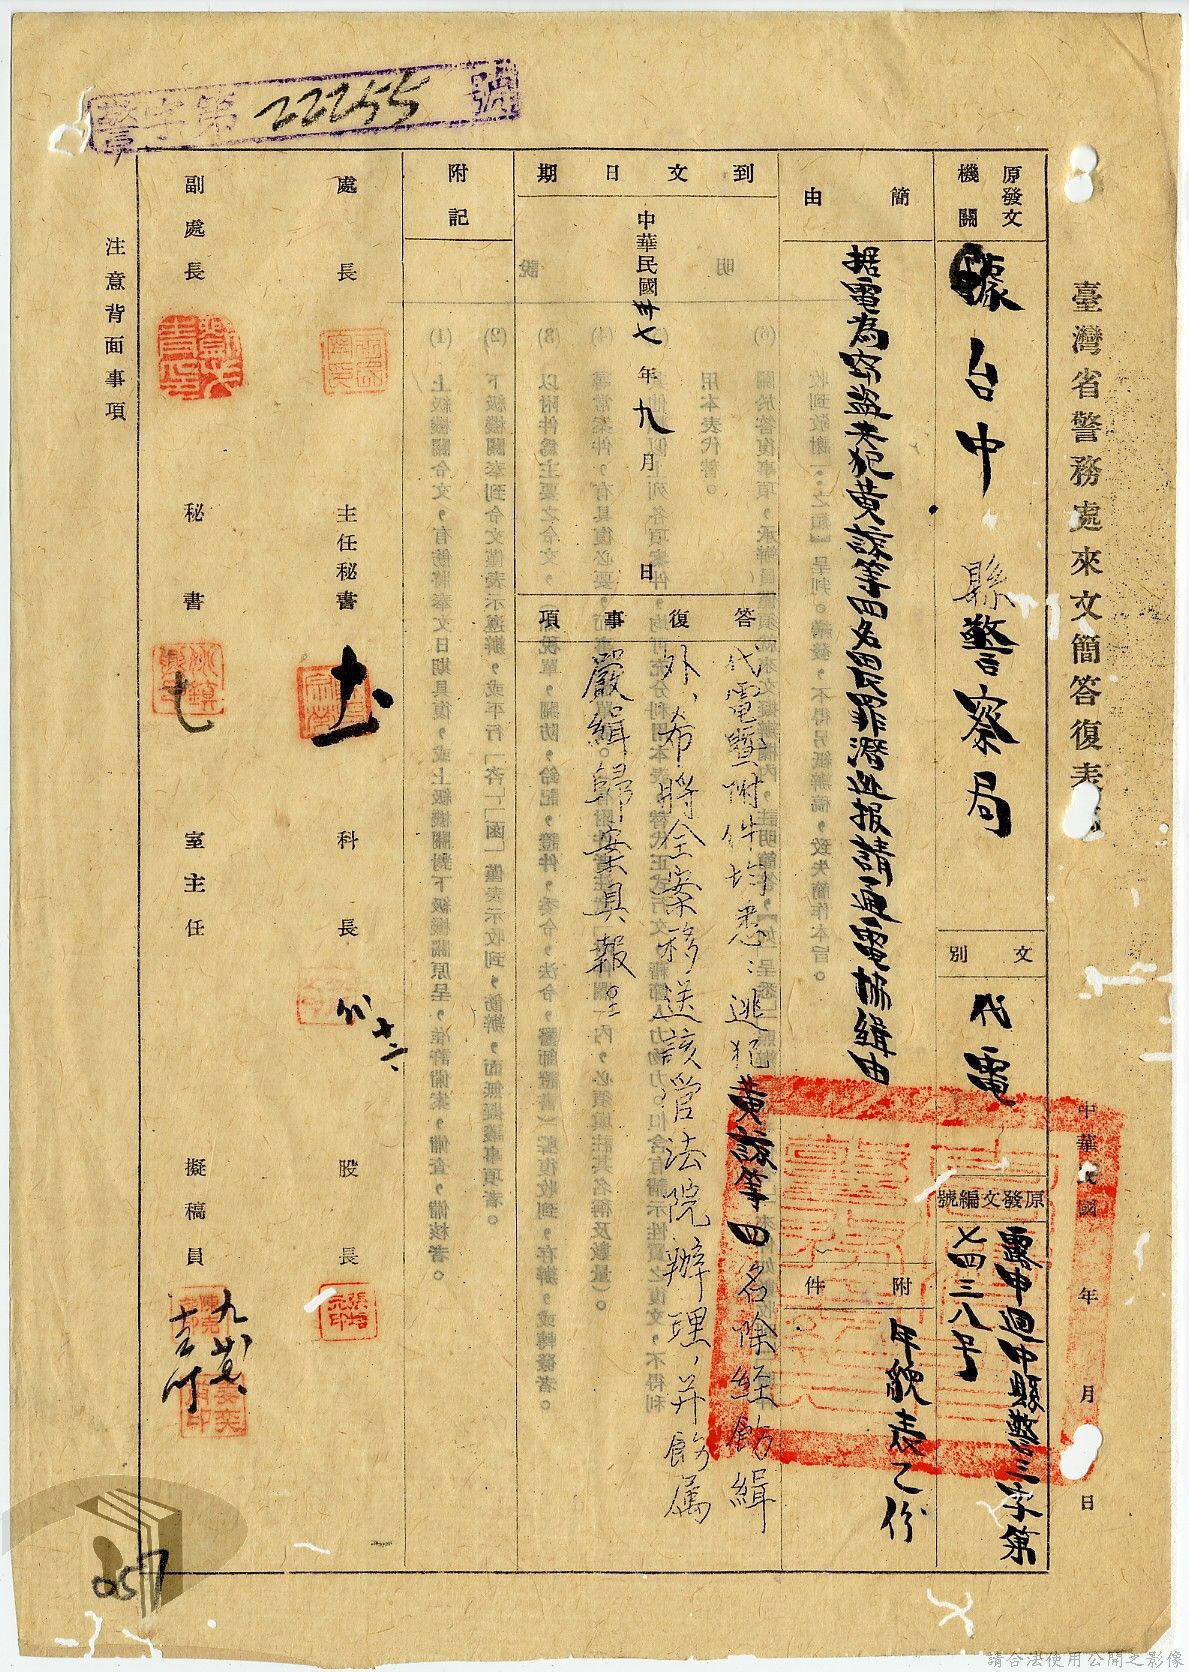 警字第22255號
臺灣省警務處來文簡答復表
中華民國　年　月　日
原發文機關
據台中縣警察局
文別
代電
原發文編號
露中迴中縣警三字第
七四三八号
簡由
据電為窃盗未犯黄諒等四名畏罪潛逃报請通電協緝由
附件
年貌表乙份
到文日期
中華民國卅七年九月　日
答復事項
代電暨附件均悉：逃犯黄諒等四名除經飭緝
外，希將全案移送該管法院辦理，并飭属
嚴緝歸案具報
附記
處長
主任秘書
科長
股長
副處長
秘書
室主任
擬稿員
注意背面事項
057
請合法使用公開之影像